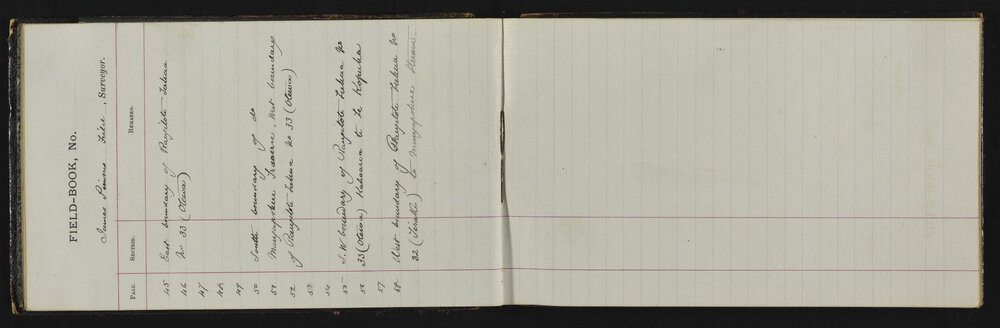 FIELD-BOOK, No.
James , Surveyor.
PAGE. SECTION. REMARKS.
45 East boundary of Rangitoto Tuhua
46 No 33 (Otawa)
47
48
49
50 South boundary of do
51 Maungapohue Traverse, West boundary
52 of Rangitoto Tuhua No 33 (Otawa)
53
54
55 S.W boundary of Rangitoto Tuhua No
56 33 (Otawa) to Te Kopuha
57
58 West boundary of Rangitoto Tuhua No
32 ( ) to